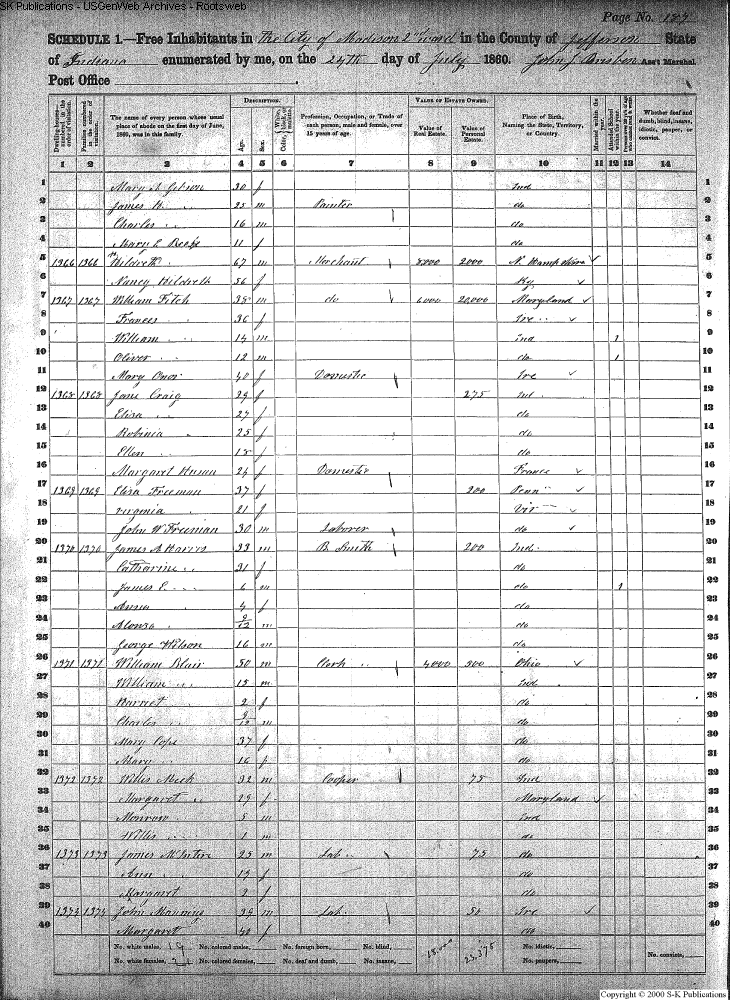 SK Publications - USGenWeb Archives - Rootsweb
Page No. 187
SCHEDULE 1.—Free Inhabitants in The City of Madison 2nd ward in the County of Jefferson State
of Indiana enumerated by me, on the 24th day of July 1860. John J. Ass't Marshal
Post Office
Dwelling-houses numbered in the order of visitation.
Families numbered in the order of visitation.
The name of every person whose usual place of abode on the first day of June, 1860, was in this family.
DESCRIPTION.
Age.
Sex.
Color, White, black, or mulatto.
Profession, Occupation, or Trade of each person, male and female, over 15 years of age.
VALUE OF ESTATE OWNED.
Value of Real Estate.
Value of Personal Estate.
Place of Birth, Naming the State, Territory, or Country.
Married within the year.
Attended School within the year.
Whether deaf and dumb, blind, insane, idiotic, pauper, or convict.
1 2 3 4 5 6 7 8 9 10 11 12 13 14
1 Mary A Gibson 30 f Ind 1
2 James H. 25 m Painter do 2
3 Charles 16 m do 3
4 Mary E 11 f do 4
5 1366 1366 Hildreth 67 m Merchant 8000 2000 N. Hampshire 5
6 Nancy Hildreth 56 f Ky 6
7 1367 1367 William Fitch 38 m do 6000 20,000 Maryland 7
8 Frances 36 f Ire 8
9 William 14 m Ind 1 9
10 Oliver 12 m do 1 10
11 Mary Onor 40 f Domestic Ire 11
12 1368 1368 Jane Craig 29 f 275 Ind 12
13 Eliza 27 f do 13
14 Robinia 25 f do 14
15 Ellen 18 f do 15
16 Margaret 24 f Domestic France 16
17 1369 1369 Eliza Freeman 37 f 200 Penn 17
18 Virginia 21 f Vir 18
19 John W Freeman 30 m Laborer do 19
20 1370 1370 James A Harris 33 m B. Smith 200 Ind. 20
21 Catharine 31 f do 21
22 James E. 6 m do 1 22
23 Anna 4 f do 23
24 Alonza 9/12 m do 24
25 George Wilson 16 m do 25
26 1371 1371 William Blair 50 m Clerk 4000 500 Ohio 26
27 William 15 m Ind 27
28 Harriet 2 f do 28
29 Charles 9/12 m do 29
30 Mary Cope 37 f do 30
31 Mary 16 f do 31
32 1372 1372 Willis Meek 32 m Cooper 75 Ind 32
33 Margaret 29 f Maryland 33
34 Monrow 5 m Ind 34
35 Willis 1 m do 35
36 1373 1373 James McIntire 25 m Lab. 75 do 36
37 Ann 19 f do 37
38 Margaret 2 f do 38
39 1374 1374 John Manning 39 m Lab. 50 Ire 39
40 Margaret 40 f do 40
No. white males, 19 No. colored males, No. foreign born, No. blind, No. idiotic, No. convicts,
No. white females, 21 No. colored females, No. deaf and dumb, No. insane, 18,000 23,375 No. paupers,
Copyright © 2000 S-K Publications